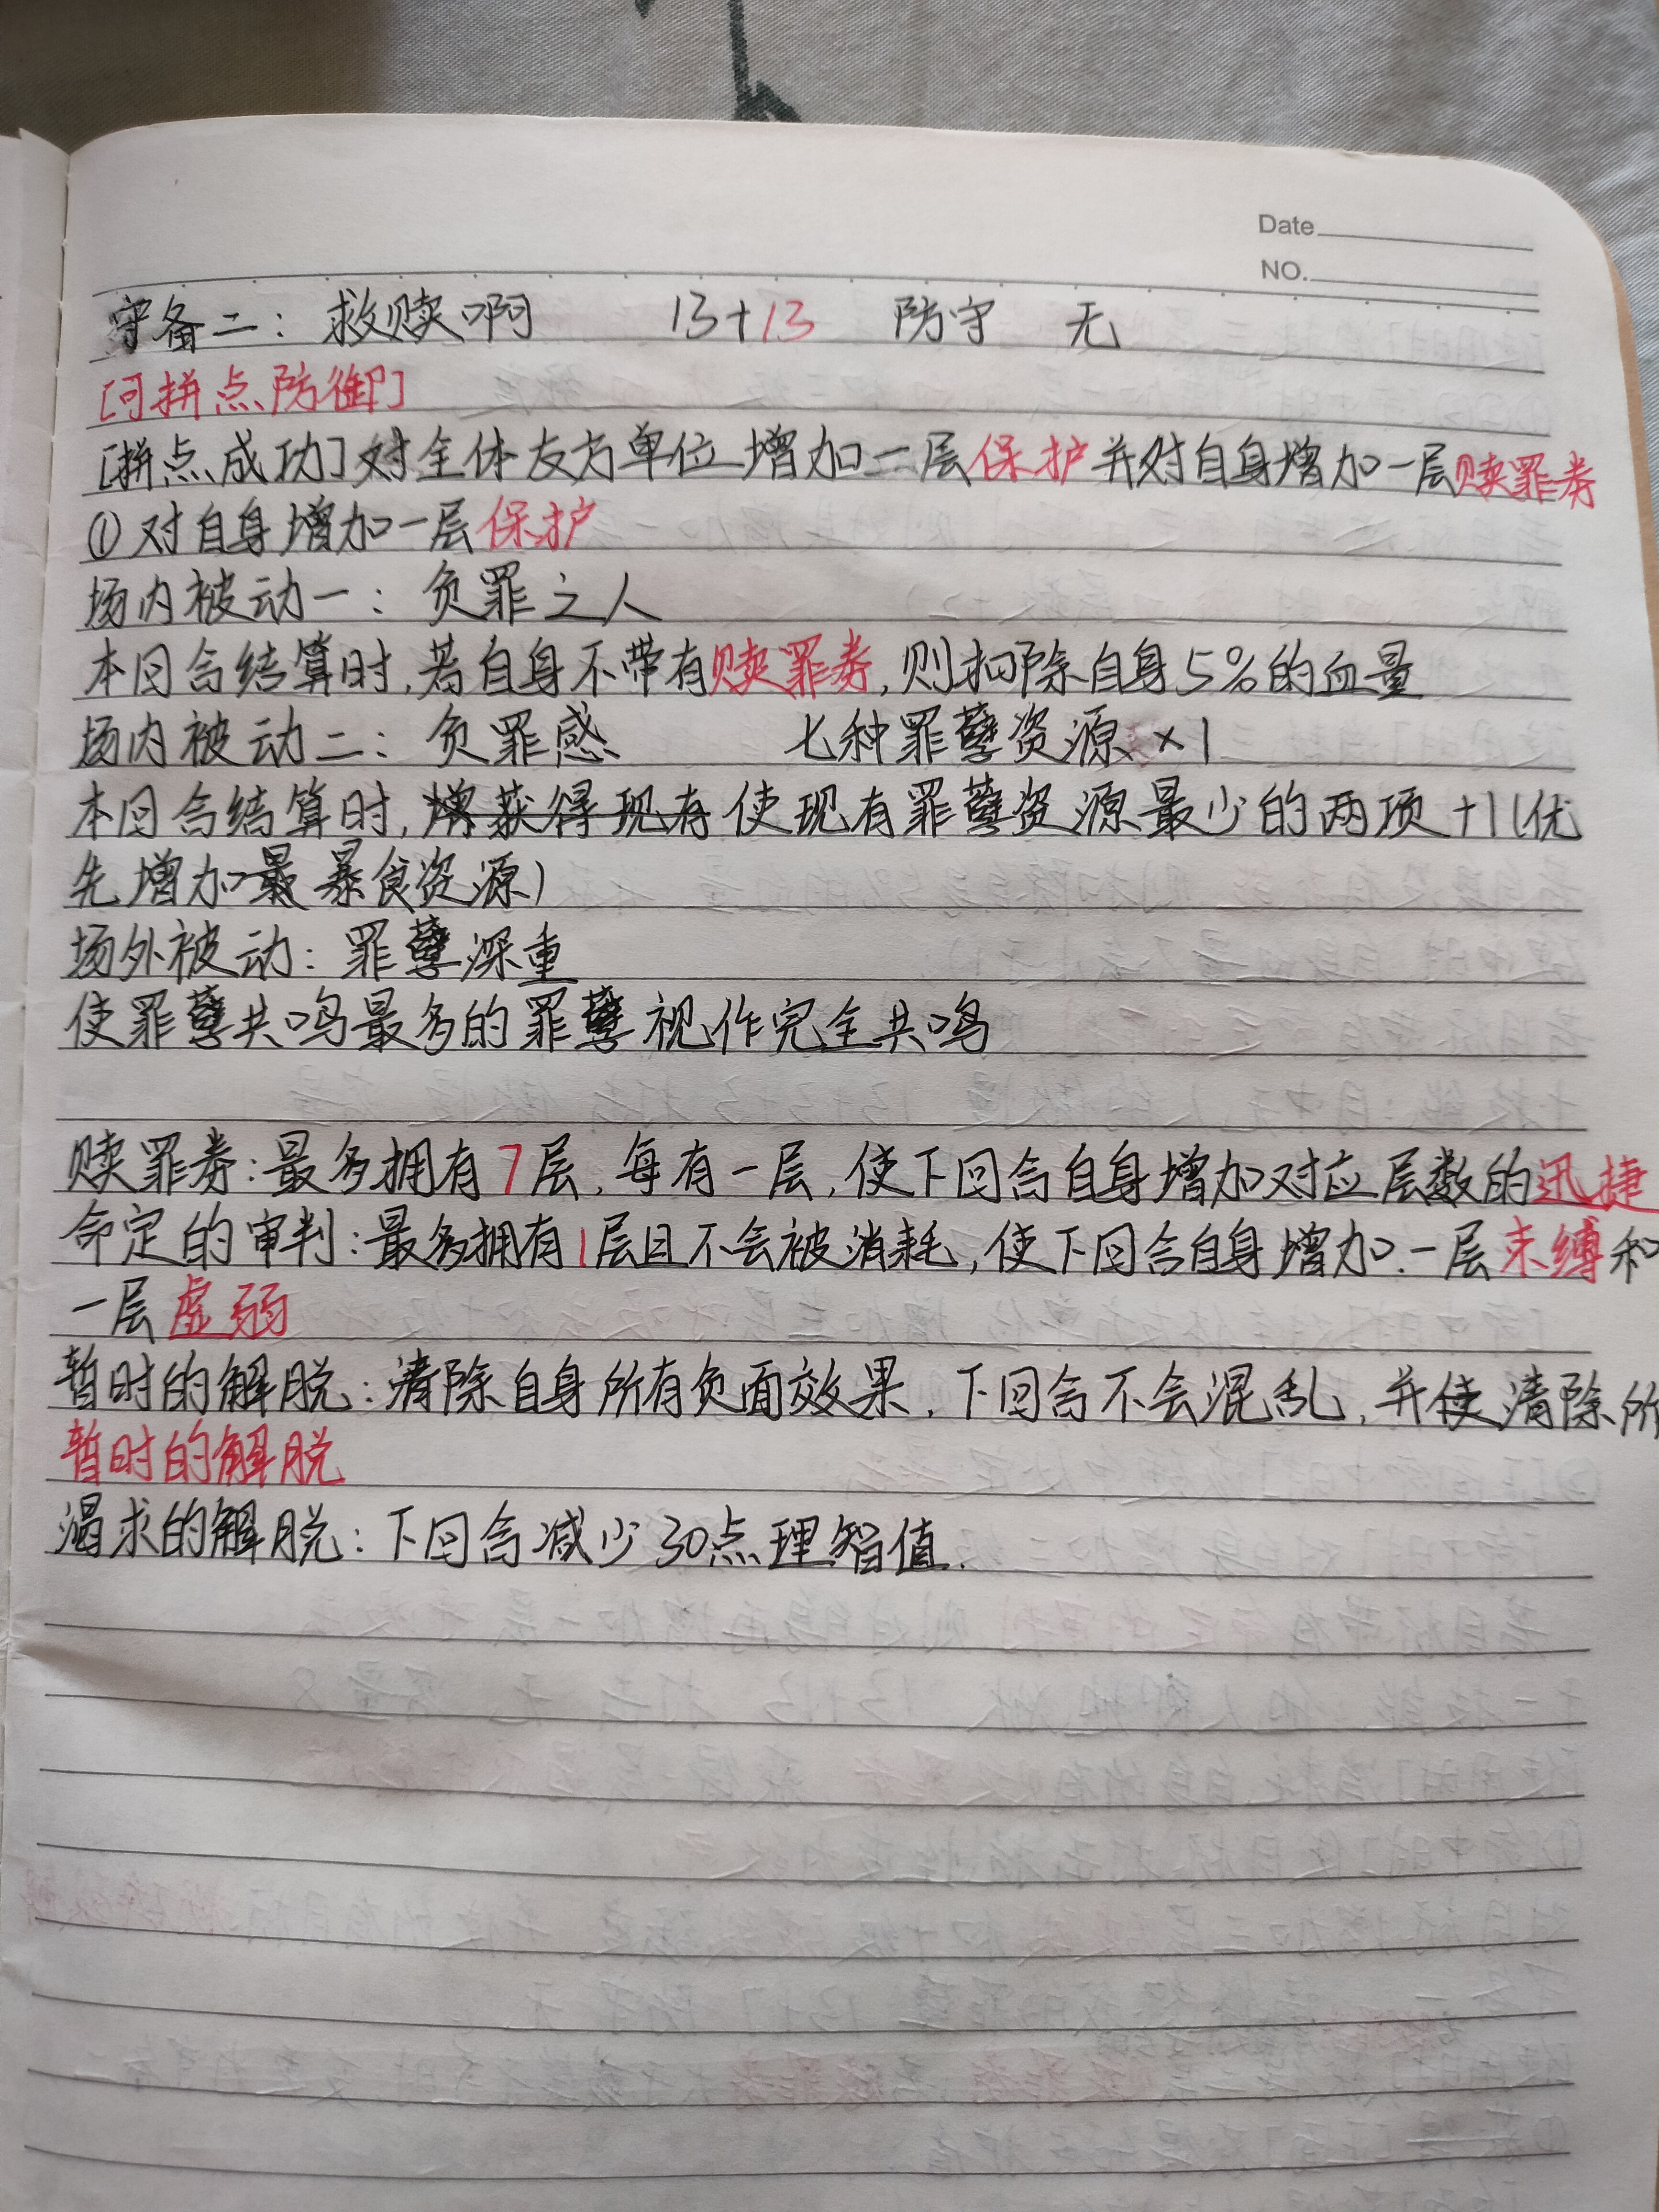 Date
NO.
守备二：救赎啊 13+13 防守 无
[可拼点防御]
[拼点成功]对全体友方单位增加一层保护并对自身增加一层赎罪券
①对自身增加一层保护
场内被动一：负罪之人
本回合结算时,若自身不带有赎罪券,则扣除自身5%的血量
场内被动二：负罪感 七种罪孽资源×1
本回合结算时,增获得现有使现有罪孽资源最少的两项+1(优
先增加最暴食资源)
场外被动：罪孽深重
使罪孽共鸣最多的罪孽视作完全共鸣
赎罪券:最多拥有7层,每有一层,使下回合自身增加对应层数的迅捷
命定的审判:最多拥有1层且不会被消耗,使下回合自身增加一层束缚和
一层虚弱
暂时的解脱:清除自身所有负面效果,下回合不会混乱,并使清除所
暂时的解脱
渴求的解脱:下回合减少30点理智值.